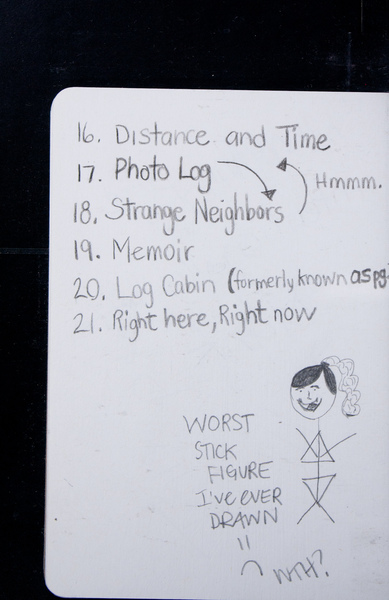 16. Distance and Time
17. Photo Log
Hmmm.
18. Strange Neighbors
19. Memoir
20. Log Cabin (formerly known as pg-
21. Right here, Right now
WORST
STICK
FIGURE
I'VE EVER
DRAWN
WTH?